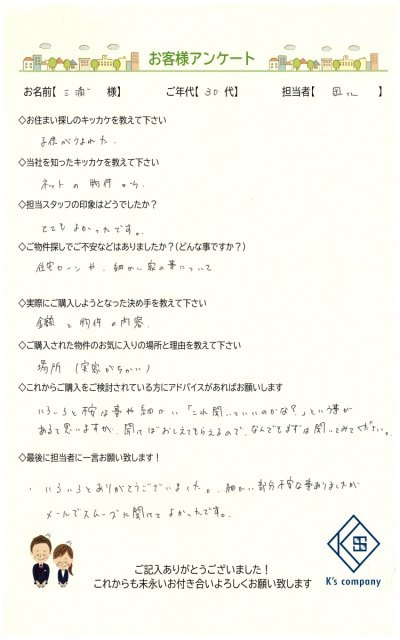 お客様アンケート
お名前【 三浦 様】 ご年代【 30 代】 担当者【 さん 】
◇お住まい探しのキッカケを教えて下さい
子供がうまれた.
◇当社を知ったキッカケを教えて下さい
ネットの物件から.
◇担当スタッフの印象はどうでしたか?
とてもよかったです。
◇ご物件探しでご不安などはありましたか?(どんな事ですか?)
住宅ローンや、細かい家の事について
◇実際にご購入しようとなった決め手を教えて下さい
金額と物件の内容.
◇ご購入された物件のお気に入りの場所と理由を教えて下さい
場所 (実家がちかい)
◇これからご購入をご検討されている方にアドバイスがあればお願いします
いろいろと不安な事や細かい「これ聞いていいのかな?」という事が
あると思いますが、聞けばおしえてもらえるので、なんでもまずは聞いてみてください。
◇最後に担当者に一言お願い致します!
・いろいろとありがとうございました。細かい部分不安な事ありましたが
メールでスムーズに聞けてよかったです。
ご記入ありがとうございました!
これからも末永いお付き合いよろしくお願い致します
K's company